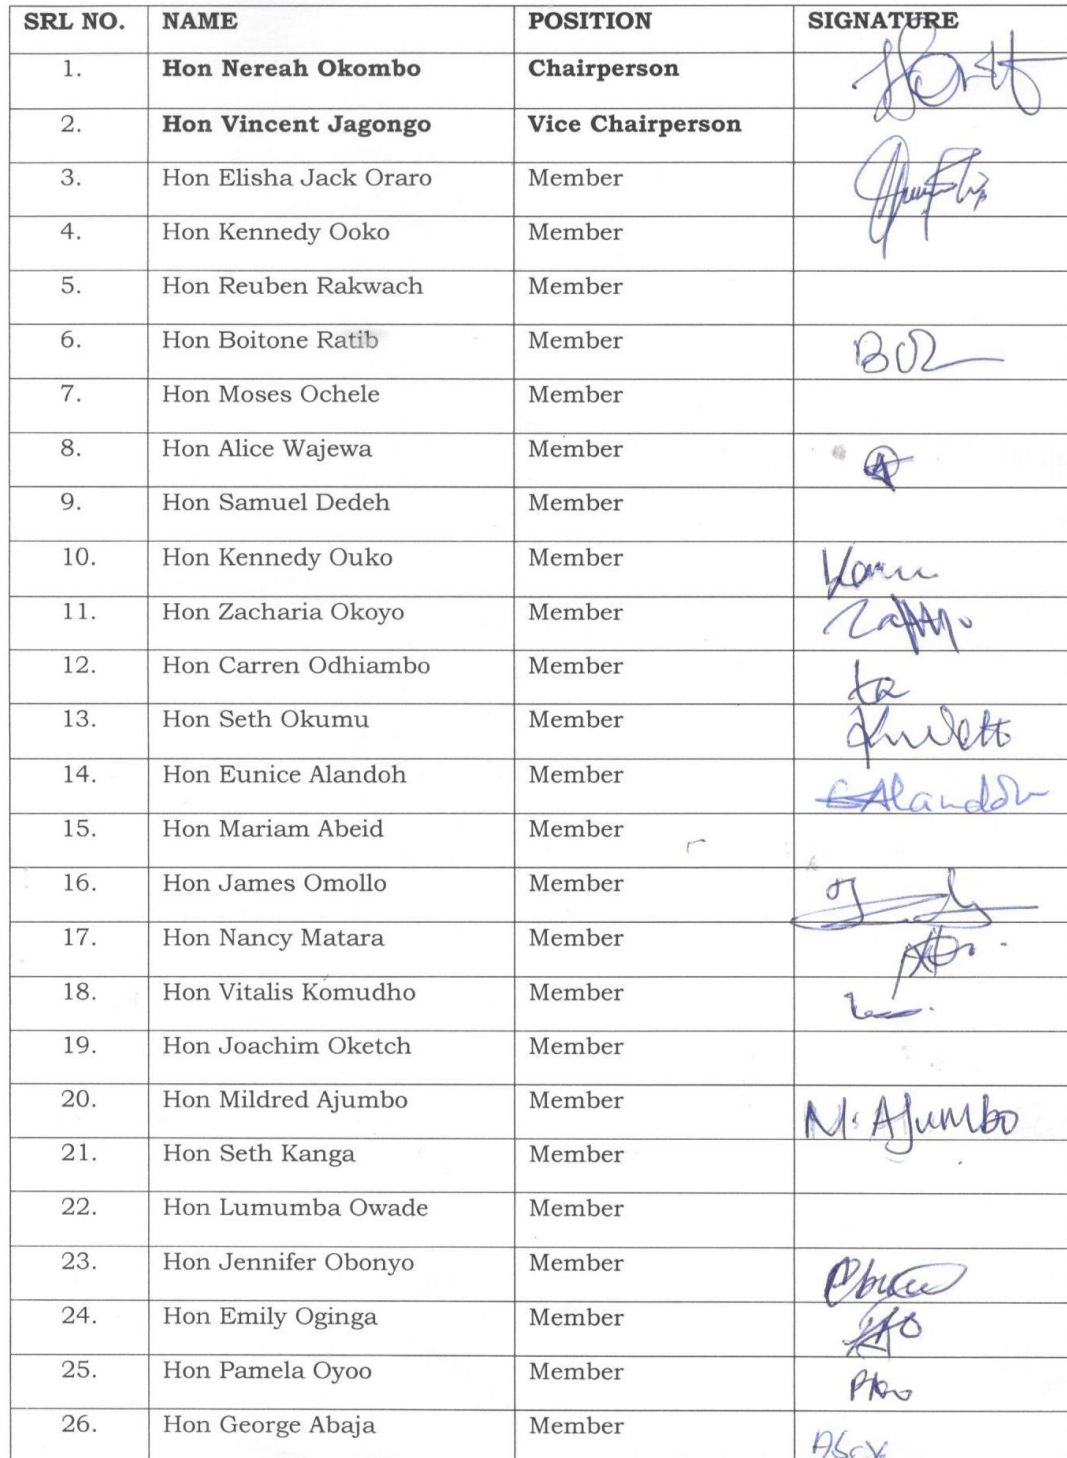 SRL NO. NAME POSITION SIGNATURE
1. Hon Nereah Okombo Chairperson
2. Hon Vincent Jagongo Vice Chairperson
3. Hon Elisha Jack Oraro Member
4. Hon Kennedy Ooko Member
5. Hon Reuben Rakwach Member
6. Hon Boitone Ratib Member
7. Hon Moses Ochele Member
8. Hon Alice Wajewa Member
9. Hon Samuel Dedeh Member
10. Hon Kennedy Ouko Member
11. Hon Zacharia Okoyo Member
12. Hon Carren Odhiambo Member
13. Hon Seth Okumu Member
14. Hon Eunice Alandoh Member
15. Hon Mariam Abeid Member
16. Hon James Omollo Member
17. Hon Nancy Matara Member
18. Hon Vitalis Komudho Member
19. Hon Joachim Oketch Member
20. Hon Mildred Ajumbo Member M. Ajumbo
21. Hon Seth Kanga Member
22. Hon Lumumba Owade Member
23. Hon Jennifer Obonyo Member
24. Hon Emily Oginga Member
25. Hon Pamela Oyoo Member
26. Hon George Abaja Member